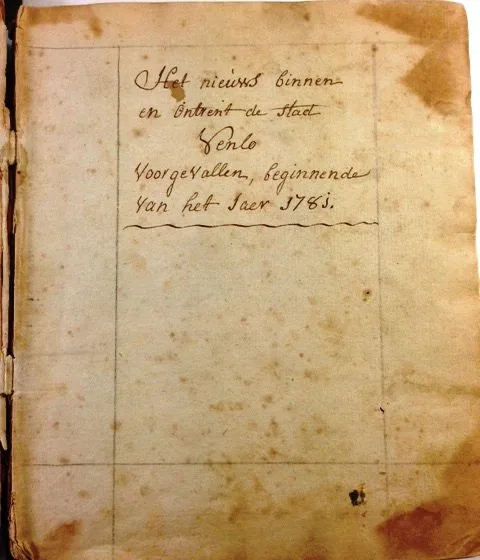 Het nieuws binnen
en Ontrent de stad
Venlo
Voorgevallen, beginnende
Van het Jaer 1781.